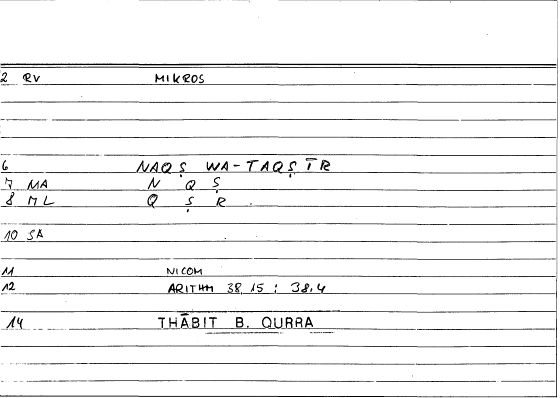 2 RV MIKROS
6 NAQṢ WA-TAQṢĪR
7 MA N Q Ṣ
8 ML Q Ṣ R
10 SA
11 NICOM
12 ARITHM 38,15 : 38,4
14 THĀBIT B. QURRA